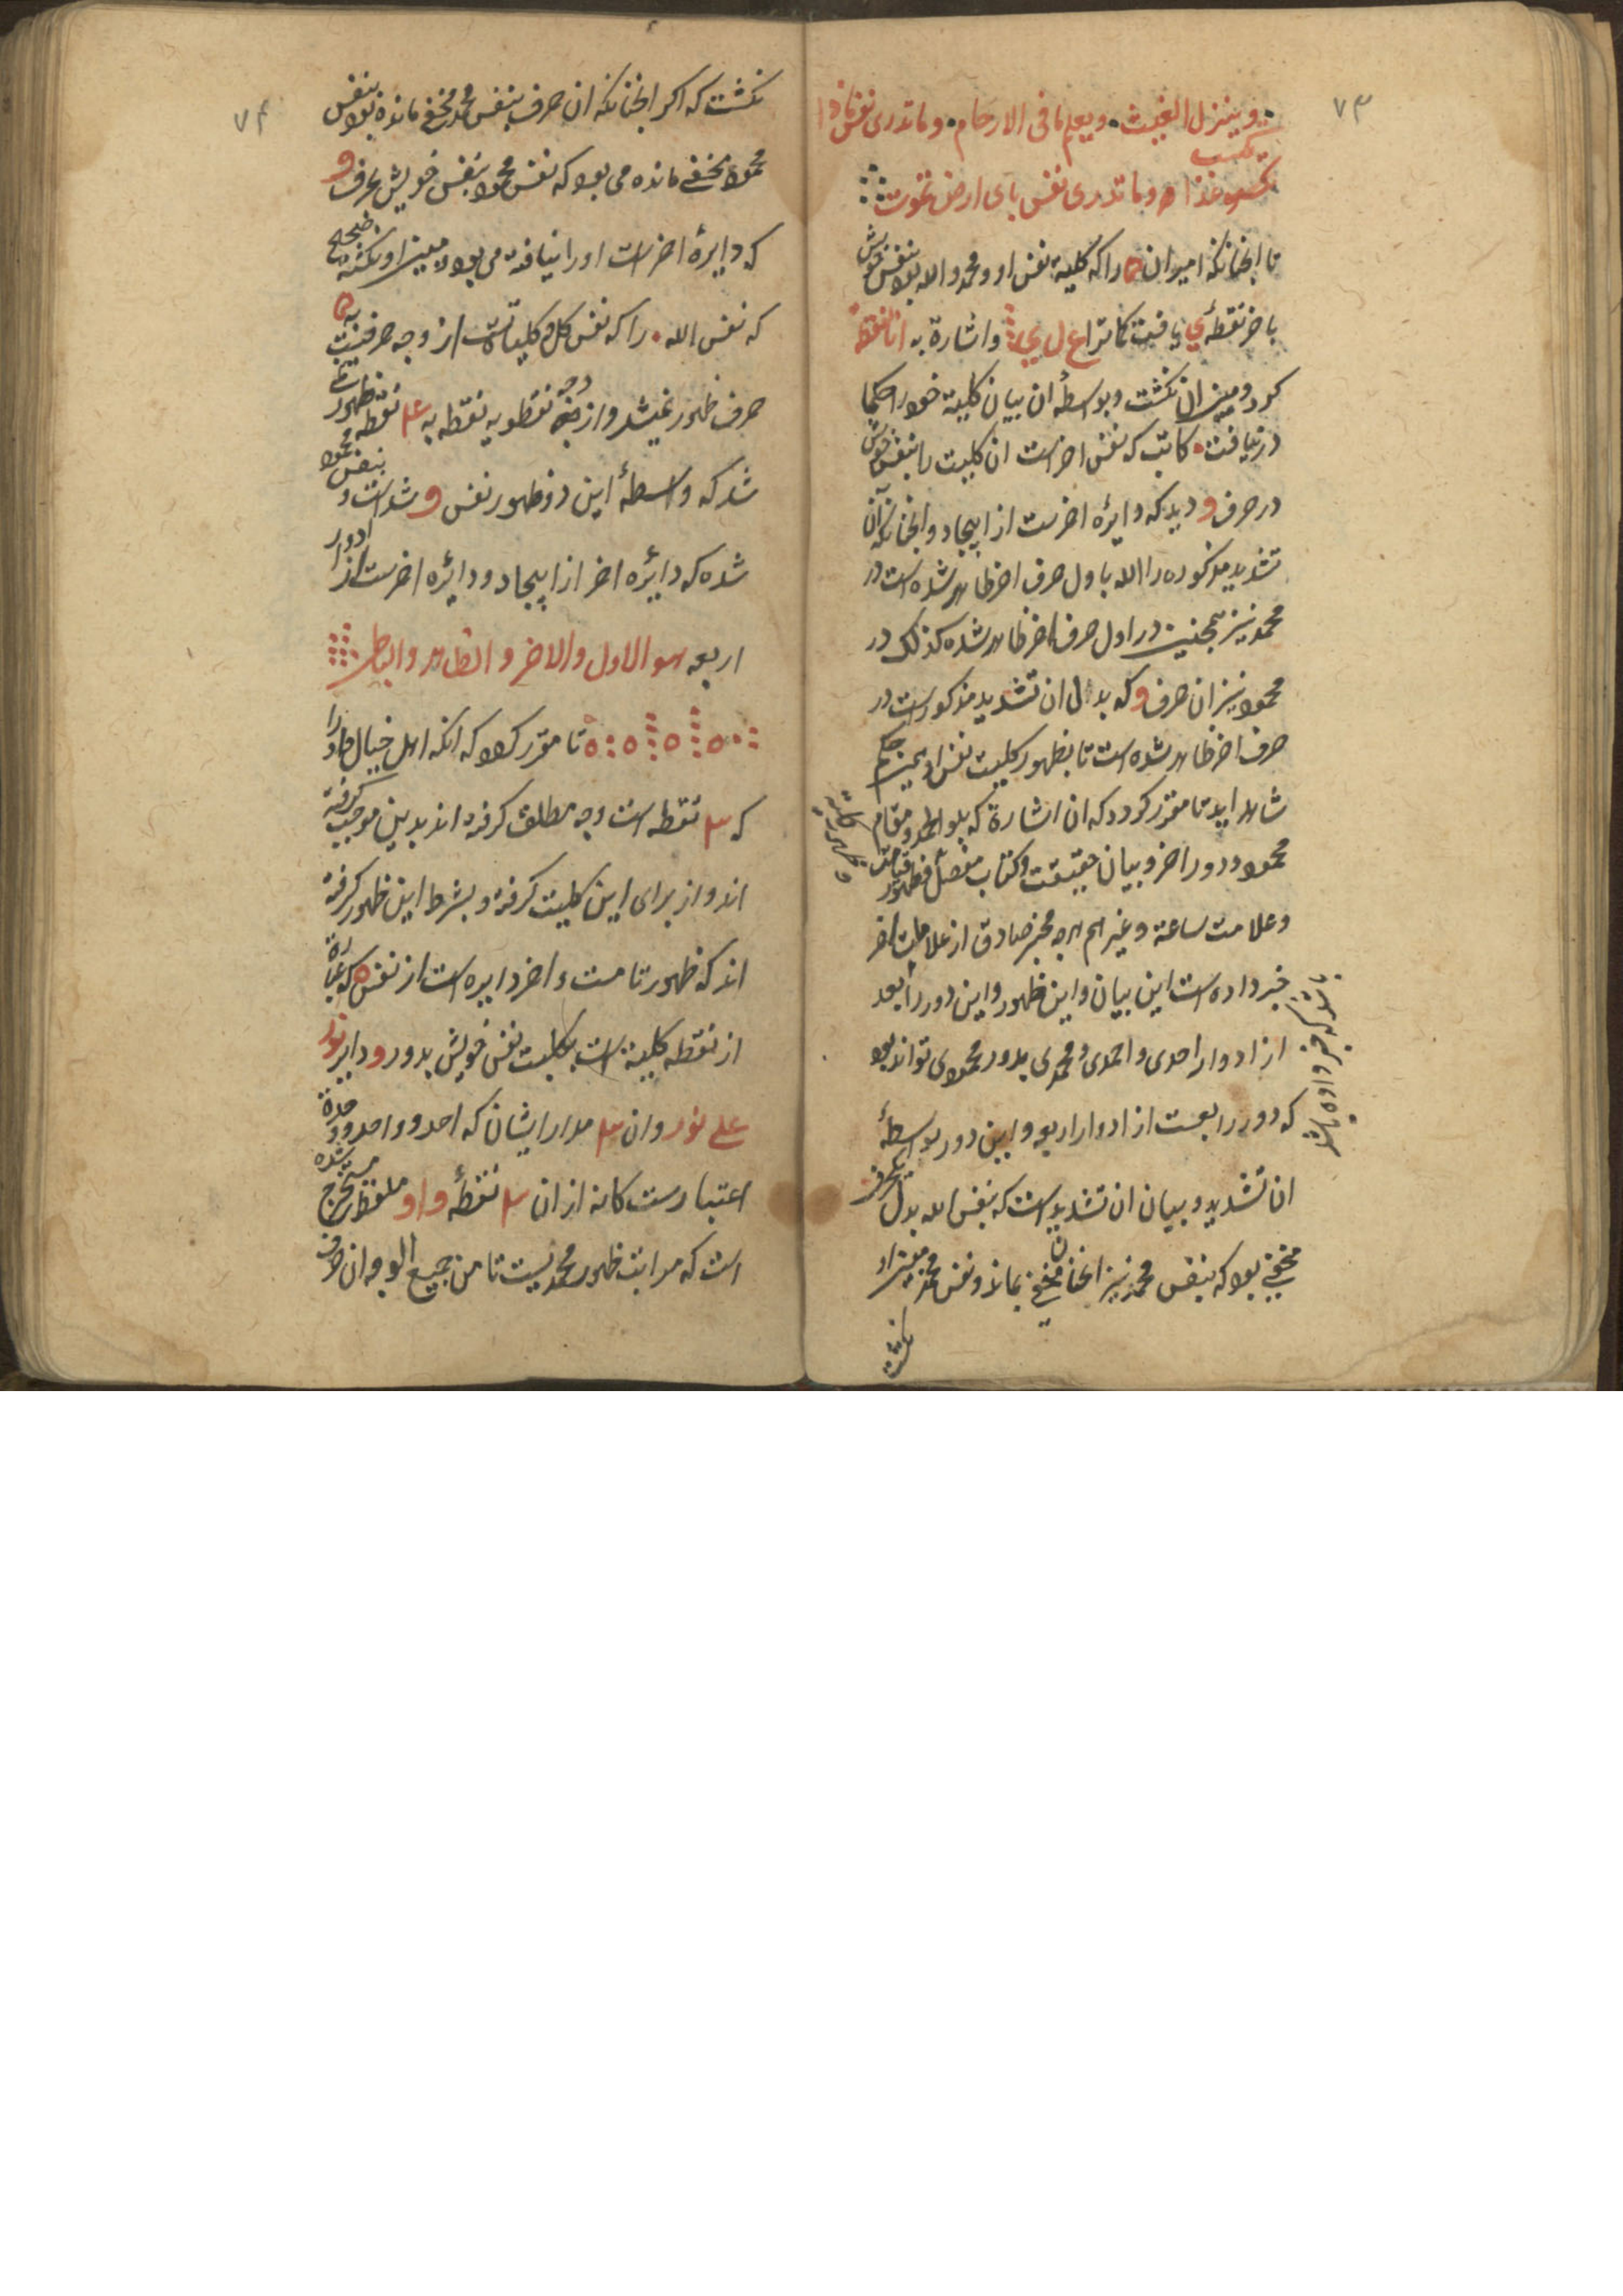 ۷۳
وينزل الغيث ويعلم ما فى الارحام وما تدرى نفس ماذا
تكسب
تكسب غدا وما تدرى نفس باى ارض تموت
تا انچنانكه اميران را كه كليهٔ نفس او و محمد و الله بود بنفس خويش
باخر نقطهٔ ى يافت كاتراع ل ى و اشارة به انا النقطه
كرد و مبين ان نكشت و بواسطهٔ ان بيان كليه خود را حكما
در نيافت كاتب كه نفس اخر است ان كليت را بنفس خويش
در حرف و ديد كه دايره اخرست از ايجاد و انچنانكه آن
تشديد مذكوره را الله باول حرف اخر ظاهر شده است در
محمد نيز همچنين در اول حرف اخر ظاهر شده كذلك در
محمود نيز ان حرف و كه بدل ان تشديد مذكورست در
حرف اخر ظاهر شده است تا بظهور كليت نفس او
شاهد ايد تا مقرر كردد كه ان اشارة كه بلواء الحمد و مقام
محمود و دور اخر و بيان حقيقت و كتاب مفصل و ظهور
وعلامت ساعة و غيرهم هرچه مخبر صادق از علامات اخر
خبر داده است اين بيان و اين ظهور و اين دور را بعد
از ادوار احدى و احمدى و محمدى بدور محمودى تواند بود
كه دور رابعست از ادوار اربعه و اين دور بواسطهٔ
ان تشديد و بيان ان تشديد است كه بنفس الله بدل
مخفى بود كه بنفس محمد نيز انچنان مخفى بماند و نفس محمد مبين او
نكشت
باشد كه خبر داده باشد
۷۴
نكشت كه اكر انچنانكه ان حرف بنفس محمد مخفى مانده بود بنفس
محمود مخفى مانده مى بود كه نفس محمود بنفس خويش بحرف و
كه دايرهٔ اخر است او را نيافته مى بود و مبين او نكشته
كه نفس الله را كه نفس كل و كليات است از وجه حرفيت به
حرف ظهور نميشد و از وجه نقطويه نقطه به ۴ نقطه ظهور
شد كه واسطهٔ اين دو ظهور نفس و شد است و بنفس محمود
شده كه دايره اخر از ايجاد و دائره اخرست از ادوار
اربعه هو الاول والاخر والظاهر والباطن
تا مقرر كردد كه انكه اهل خيال مدار را
كه ۳ نقطه است وجه مطلق كرفته اند بدين موجب كرفته
اند و از براى اين كليت كرفته و بشرط اين ظهور كرفته
اند كه ظهور تامست و اخر دايره است از نفس ه كه عبارة
از نقطه كليه است بكليت نفس خويش بدور و داير نور
على نور و ان ۳ مدار ايشان كه احد و احد و وحدة
اعتبارست كانه از ان ۳ نقطهٔ واو ملفوظ مستخرج شده
است كه مراتب ظهور محمديست تا من جميع الوجه ان حرف